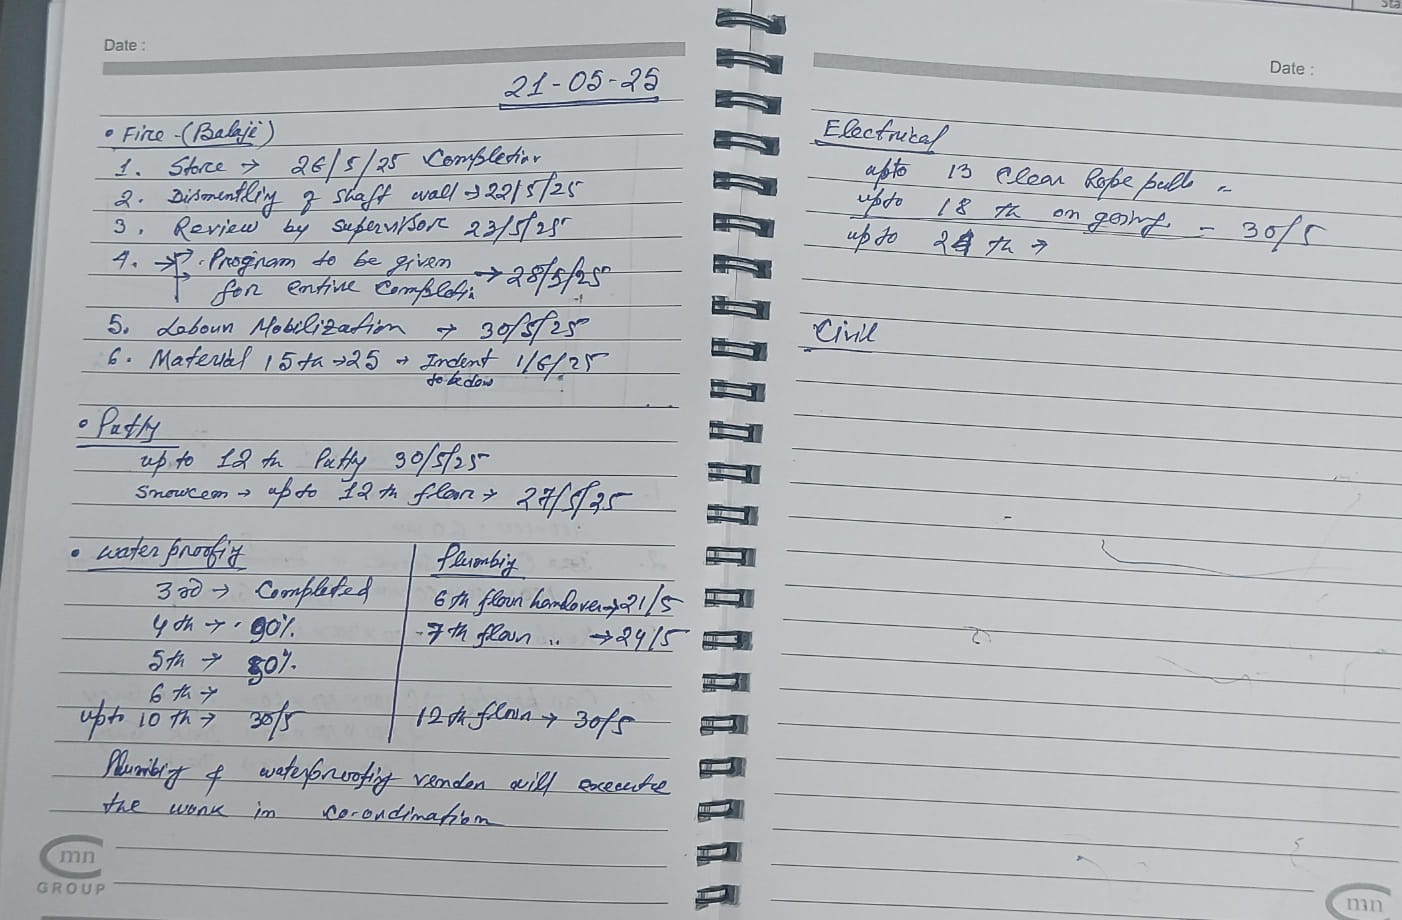 Date :
21-05-25
• Fire - (Balaji)
1. Store → 26/5/25 Completion
2. Dismentling of shaft wall → 22/5/25
3. Review by supervisor 23/5/25
4. → Program to be given
for entire completi → 28/5/25
5. Labour Mobilization → 30/5/25
6. Material 15th → 25 → Indent 1/6/25
to be done
• Putty
up to 12th Putty 30/5/25
Snowcem → upto 12th floor → 27/5/25
• waterproofing
3rd → Completed
4th → 90%
5th → 80%
6th →
upto 10th → 30/5
Plumbing
6th floor handover → 21/5
7th floor ,, → 24/5
12th floor → 30/5
Plumbing & waterproofing vendor will execute
the work in co-ordination
mn
GROUP
Date :
Electrical
upto 13 Clear Rope
upto 18th on going - 30/5
upto 24th →
Civil
mn
Sta